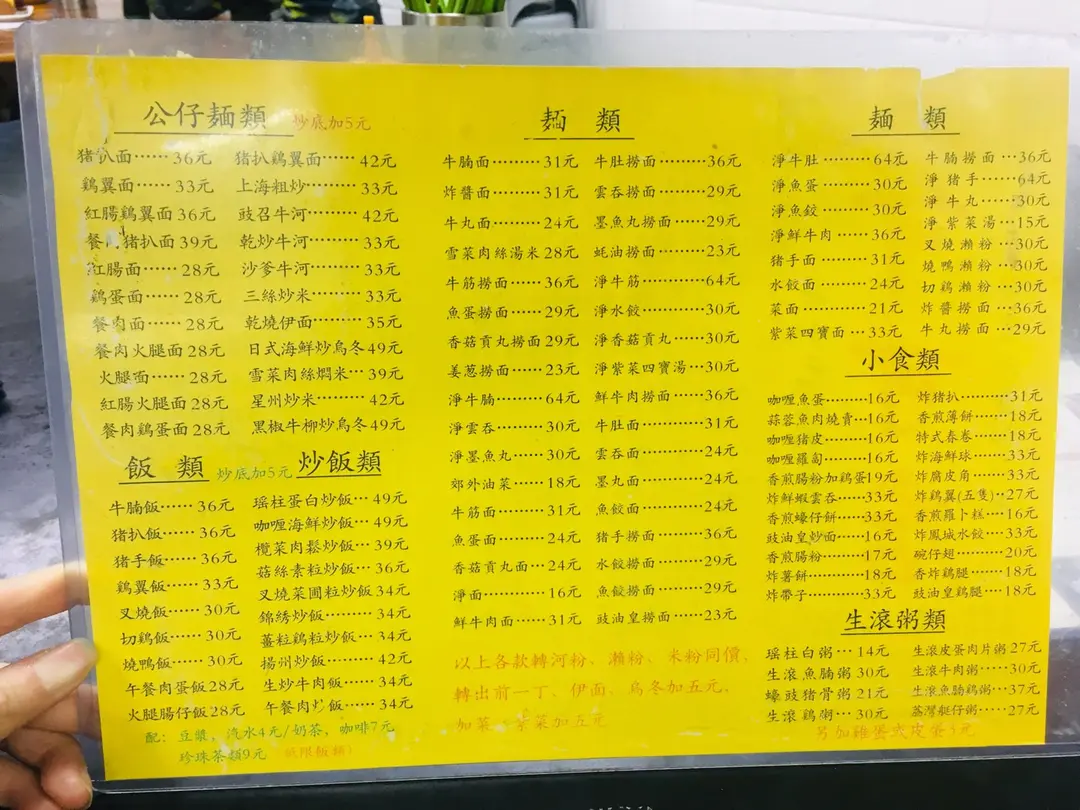 公仔麵類 炒底加5元
猪扒面……36元
鷄翼面……33元
紅腸鷄翼面36元
餐肉猪扒面39元
紅腸面……28元
鷄蛋面……28元
餐肉面……28元
餐肉火腿面28元
火腿面……28元
紅腸火腿面28元
餐肉鷄蛋面28元
猪扒鷄翼面……42元
上海粗炒………33元
豉召牛河………42元
乾炒牛河………33元
沙爹牛河………33元
三絲炒米………33元
乾燒伊面………35元
日式海鮮炒烏冬49元
雪菜肉絲燜米…39元
星州炒米………42元
黑椒牛柳炒烏冬49元
飯 類 炒底加5元
牛腩飯……36元
猪扒飯……36元
猪手飯……36元
鷄翼飯……33元
叉燒飯……30元
切鷄飯……30元
燒鴨飯……30元
午餐肉蛋飯28元
火腿腸仔飯28元
炒飯類
瑶柱蛋白炒飯…49元
咖喱海鮮炒飯…49元
欖菜肉鬆炒飯…39元
菇絲素粒炒飯…36元
叉燒菜圃粒炒飯34元
錦綉炒飯………34元
薑粒鷄粒炒飯…34元
揚州炒飯………42元
生炒牛肉飯……34元
午餐肉炒飯……34元
配：豆漿，汽水4元/奶茶，咖啡7元
珍珠茶類9元
麵 類
牛腩面………31元
炸醬面………31元
牛丸面………24元
雪菜肉絲湯米28元
牛筋撈面……36元
魚蛋撈面……29元
香菇貢丸撈面29元
姜葱撈面……23元
淨牛腩………64元
淨雲吞………30元
淨墨魚丸……30元
郊外油菜……18元
牛筋面………31元
魚蛋面………24元
香菇貢丸面…24元
淨面…………16元
鮮牛肉面……31元
牛肚撈面………36元
雲吞撈面………29元
墨魚丸撈面……29元
蚝油撈面………23元
淨牛筋…………64元
淨水餃…………30元
淨香菇貢丸……30元
淨紫菜四寶湯…30元
鮮牛肉撈面……36元
牛肚面…………31元
雲吞面…………24元
墨丸面…………24元
魚餃面…………24元
猪手撈面………36元
水餃撈面………29元
魚餃撈面………29元
豉油皇撈面……23元
以上各款轉河粉、瀨粉、米粉同價、
轉出前一丁、伊面、烏冬加五元，
加菜、紫菜加五元
麵 類
淨牛肚………64元
淨魚蛋………30元
淨魚餃………30元
淨鮮牛肉……36元
猪手面………31元
水餃面………24元
菜面…………21元
紫菜四寶面…33元
牛腩撈面…36元
淨猪手……64元
淨牛丸……30元
淨紫菜湯…15元
叉燒瀨粉…30元
燒鴨瀨粉…30元
切鷄瀨粉…30元
炸醬撈面…36元
牛丸撈面…29元
小食類
咖喱魚蛋………16元
蒜蓉魚肉燒賣…16元
咖喱猪皮………16元
咖喱羅匐………16元
香煎腸粉加鷄蛋19元
炸鮮蝦雲吞……33元
香煎蠔仔餅……33元
豉油皇炒面……16元
香煎腸粉………17元
炸薯餅…………18元
炸帶子…………33元
炸猪扒…………31元
香煎薄餅………18元
特式春卷………18元
炸海鮮球………33元
炸腐皮角………33元
炸鷄翼(五隻)…27元
香煎羅卜糕……16元
炸鳳城水餃……33元
碗仔翅…………20元
香炸鷄腿………18元
豉油皇鷄腿……18元
生滾粥類
瑶柱白粥…14元
生滾魚腩粥30元
蠔豉猪骨粥21元
生滾鷄粥…30元
生滾皮蛋肉片粥27元
生滾牛肉粥……30元
生滾魚腩鷄粥…37元
荔灣艇仔粥……27元
另加雞蛋或皮蛋3元